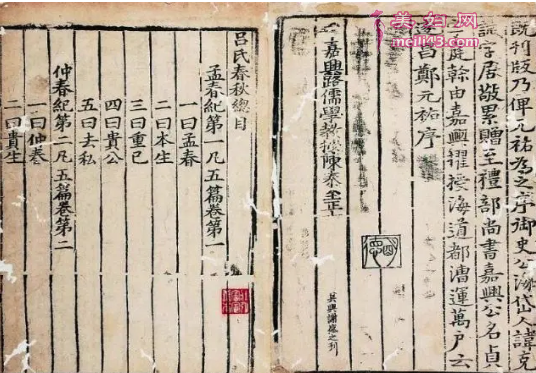 美女网
meili43.com
既刊版乃俾元祐為之序御史公海岱人諱克
字居敬累贈至禮部尚書嘉興公名貞
庭幹由嘉興擢授海道都漕運萬戶云
遂昌鄭元祐序
嘉興路儒學教授陳泰至正
吳興謝盛之刊
呂氏春秋總目
孟春紀第一凡五篇卷第一
一曰孟春
二曰本生
三曰重己
四曰貴公
五曰去私
仲春紀第二凡五篇卷第二
一曰仲春
二曰貴生